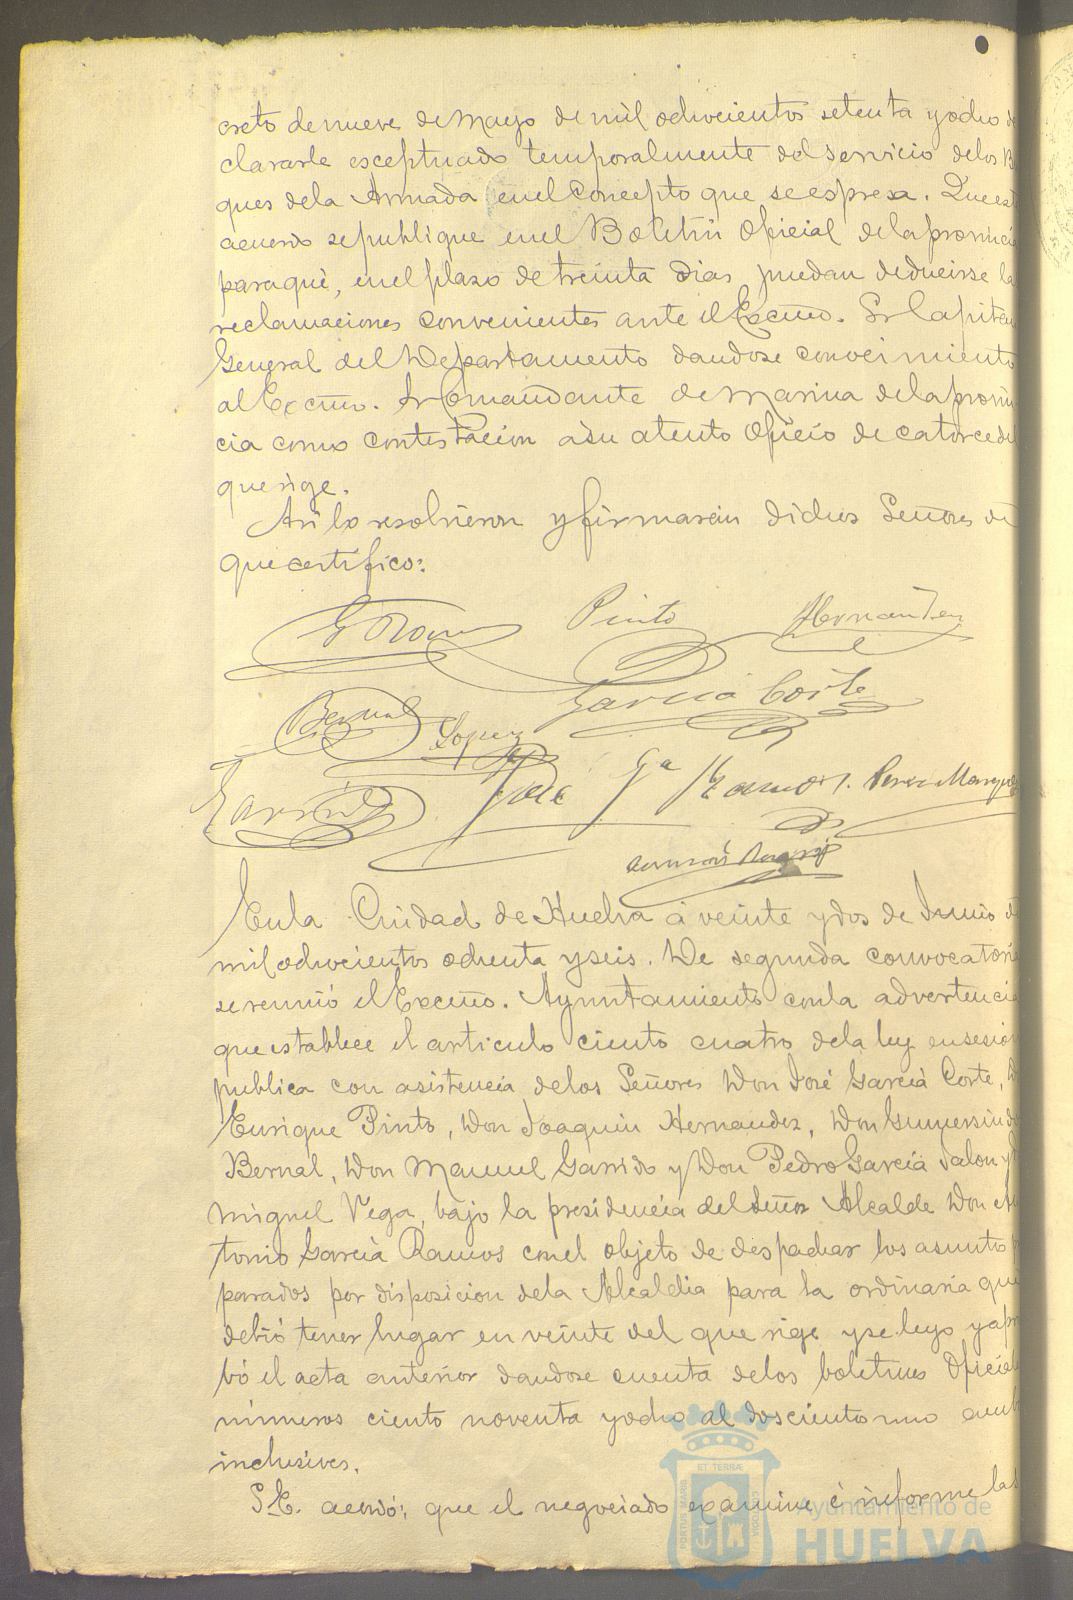 creto de nueve de Mayo de mil ochocientos setenta y ocho de
clararle esceptuado temporalmente del servicio de los Bu
ques de la Armada en el Concepto que se espresa. Que este
acuerdo se publique en el Boletin Oficial de la provincia
para que, en el plazo de treinta dias puedan deducirse la
reclamaciones convenientes ante el Excmo. Sr Capitan
General del Departamento dandose conocimiento
al Excmo. Sr Comandante de Marina de la provin
cia como contestacion a su atento oficio de catorce del
que rige.
Asi lo resolvieron y firmaran dichos Señores de
que certifico:
G Ramos Pinto Hernandez
Bernal Lopez Garcia Corte
Garrido José Gª Ramos J. Perez Marquez
En la Ciudad de Huelva á veinte y dos de Junio de
mil ochocientos ochenta y seis. De segunda convocatoria
se reunió el Excmo. Ayuntamiento con la advertencia
que establece el articulo ciento cuatro de la ley en sesion
publica con asistencia de los Señores Don José Garcia Corte, D
Enrique Pinto, Don Joaquin Hernandez, Don Gumersindo
Bernal, Don Manuel Garrido y Don Pedro Garcia Jalon y D
Miguel Vega, bajo la presidencia del Señor Alcalde Don An
tonio Garcia Ramos con el objeto de despachar los asuntos p
parados por disposicion de la Alcaldia para la ordinaria que
debió tener lugar en veinte del que rige y se leyo y apro
bó el acta anterior dandose cuenta de los boletines Oficiale
números ciento noventa y ocho al doscientos uno amb
inclusives.
S.E. acordó: que el negociado examine é informe las
ET TERRÆ
PORTUS MARIS
CUSTODIA
Ayuntamiento de
HUELVA